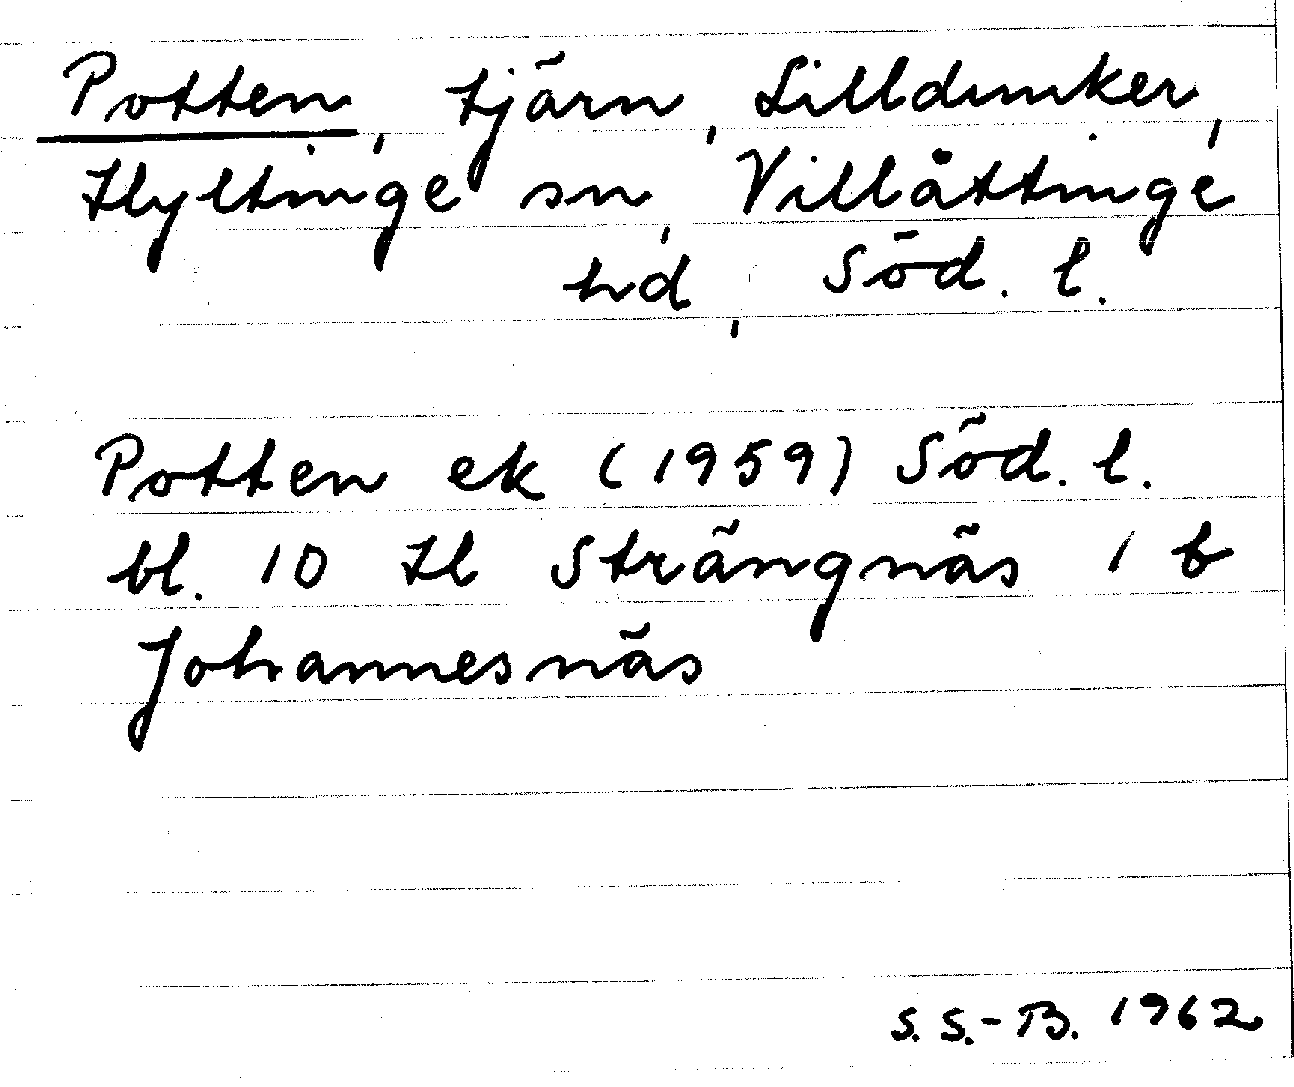 Potten, tjärn, Lilldunker,
Hyltinge sn, Villåttinge
hd, Söd. l.
Potten ek (1959) Söd. l.
bl. 10 tl Strängnäs 1 b
Johannesnäs
S. S.-B. 1962